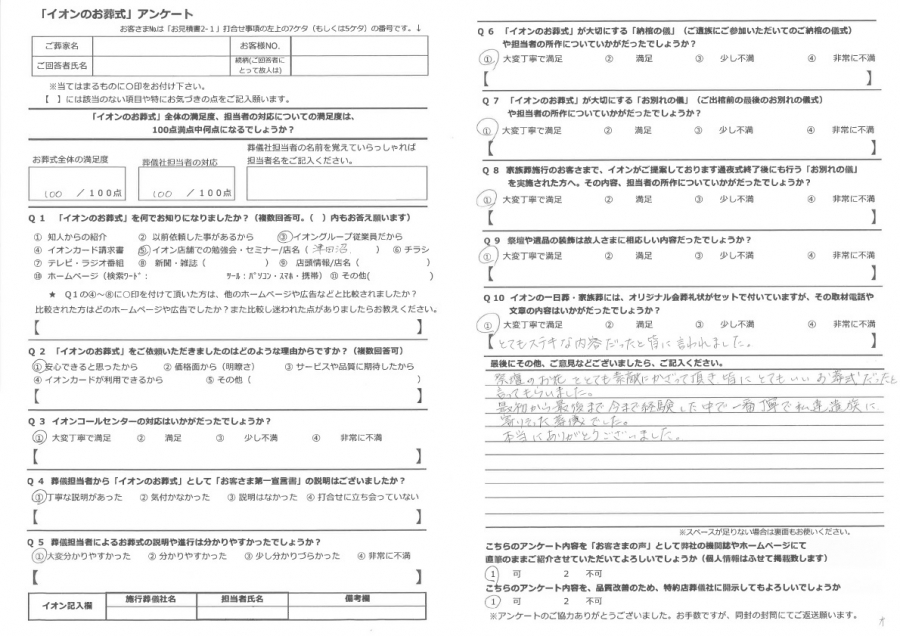 「イオンのお葬式」アンケート
お客さま№は「お見積書2-1」打合せ事項の左上の7ケタ（もしくは5ケタ）の番号です。↓
ご葬家名 お客様NO.
ご回答者氏名 続柄(ご回答者にとって故人は)
※当てはまるものに○印をお付け下さい。
【　】には該当のない項目や特にお気づきの点をご記入願います。
「イオンのお葬式」全体の満足度、担当者の対応についての満足度は、
100点満点中何点になるでしょうか？
葬儀社担当者の名前を覚えていらっしゃれば
お葬式全体の満足度 葬儀社担当者の対応 担当者名をご記入ください。
100 ／100点 100 ／100点
Q 1 「イオンのお葬式」を何でお知りになりましたか？（複数回答可。（　）内もお答え願います）
① 知人からの紹介 ② 以前依頼した事があるから ③ イオングループ従業員だから
④ イオンカード請求書 ⑤ イオン店舗での勉強会・セミナー/店名（ 津田沼 ） ⑥ チラシ
⑦ テレビ・ラジオ番組 ⑧ 新聞・雑誌（　　） ⑨ 店頭情報/店名（　　）
⑩ ホームページ（検索ワード：　　ツール：パソコン・スマホ・携帯） ⑪ その他(　　)
★ Q1の④～⑧に○印を付けて頂いた方は、他のホームページや広告などと比較されましたか？
比較された方はどのホームページや広告でしたか？また比較し迷われた点がありましたらお教えください。
【　】
Q 2 「イオンのお葬式」をご依頼いただきましたのはどのような理由からですか？（複数回答可）
①安心できると思ったから ② 価格面から（明瞭さ） ③ サービスや品質に期待したから
④ イオンカードが利用できるから ⑤ その他（　　）
【　】
Q 3 イオンコールセンターの対応はいかがだったでしょうか？
① 大変丁寧で満足 ② 満足 ③ 少し不満 ④ 非常に不満
【　】
Q 4 葬儀担当者から「イオンのお葬式」として「お客さま第一宣言書」の説明はございましたか？
①丁寧な説明があった ② 気付かなかった ③ 説明はなかった ④ 打合せに立ち会っていない
【　】
Q 5 葬儀担当者によるお葬式の説明や進行は分かりやすかったでしょうか？
①大変分かりやすかった ② 分かりやすかった ③ 少し分かりづらかった ④ 非常に不満
【　】
イオン記入欄 施行葬儀社名 担当者氏名 備考欄
Q 6 「イオンのお葬式」が大切にする「納棺の儀」（ご遺族にご参加いただいてのご納棺の儀式）
や担当者の所作についていかがだったでしょうか？
① 大変丁寧で満足 ② 満足 ③ 少し不満 ④ 非常に不満
【　】
Q 7 「イオンのお葬式」が大切にする「お別れの儀」（ご出棺前の最後のお別れの儀式）
や担当者の所作についていかがだったでしょうか？
① 大変丁寧で満足 ② 満足 ③ 少し不満 ④ 非常に不満
【　】
Q 8 家族葬施行のお客さまで、イオンがご提案しております通夜式終了後にも行う「お別れの儀」
を実施された方へ。その内容、担当者の所作についていかがだったでしょうか？
① 大変丁寧で満足 ② 満足 ③ 少し不満 ④ 非常に不満
【　】
Q 9 祭壇や遺品の装飾は故人さまに相応しい内容だったでしょうか？
① 大変丁寧で満足 ② 満足 ③ 少し不満 ④ 非常に不満
【　】
Q 10 イオンの一日葬・家族葬には、オリジナル会葬礼状がセットで付いていますが、その取材電話や
文章の内容はいかがだったでしょうか？
① 大変丁寧で満足 ② 満足 ③ 少し不満 ④ 非常に不満
【とてもステキな内容だったと皆に言われました。】
最後にその他、ご意見などございましたら、ご記入ください。
祭壇のお花をとても素敵にかざって頂き皆にとてもいいお葬式だったと
言ってもらいました。
最初から最後まで今まで経験した中で一番丁寧で私達遺族に
寄りそった葬儀でした。
本当にありがとうございました。
※スペースが足りない場合は裏面もお使いください。
こちらのアンケート内容を「お客さまの声」として弊社の機関誌やホームページにて
直筆のままご紹介させていただいてよろしいでしょうか（個人情報はふせて掲載致します）
1 可 2 不可
こちらのアンケート内容を、品質改善のため、特約店葬儀社に開示してもよろしいでしょうか
1 可 2 不可
※アンケートのご協力ありがとうございました。お手数ですが、同封の封筒にてご返送願います。